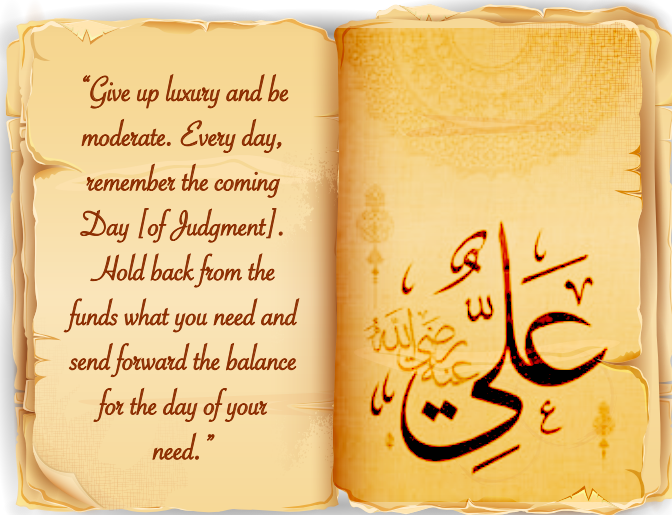 “Give up luxury and be
moderate. Every day,
remember the coming
Day [of Judgment].
Hold back from the
funds what you need and
send forward the balance
for the day of your
need.”
عَلِيّ
رضي الله عنه